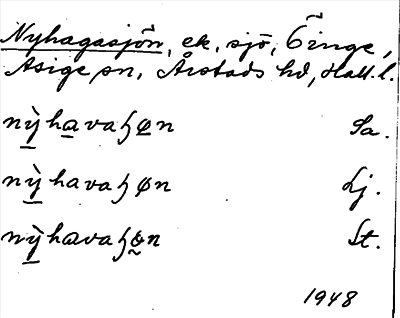 Nyhagasjön, ek, sjö, Öinge,
Asige sn, Årstads hd, Hall. l.
nỳhavaɧøn Sa.
nỳhavaɧøn Lj.
nỳhavaɧøn St.
1948